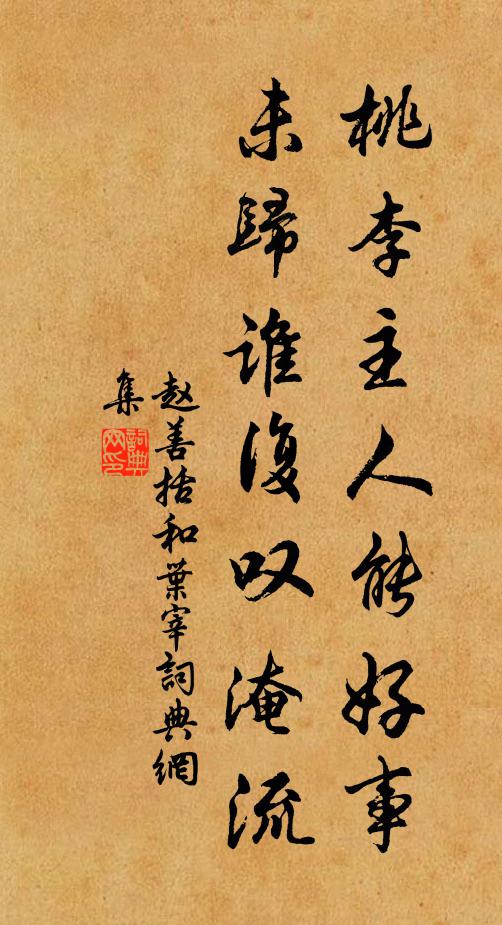 桃李主人能好事
未歸谁復叹淹流
赵善括和葉宰詞典網
集
詞典
网印